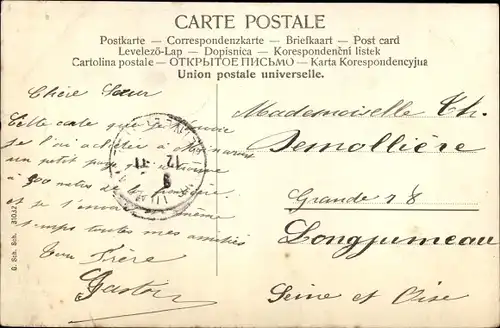 CARTE POSTALE
Postkarte — Correspondenzkarte — Briefkaart — Post card
Levelező-Lap — Dopisnica — Korespondenční listek
Cartolina postale — ОТКРЫТОЕ ПИСЬМО — Karta Korespondencyjna
Union postale universelle.
Chère Sœur
Cette carte que je t'envoie
je l'ai achetée à
un petit pays
à 300 mètres de la frontière
et je t'envoie même
temps toutes mes amitiés
Ton Frère
Gaston
Mademoiselle Th.
Demollière
Grande 78
Longjumeau
Seine et Oise
12
11
G. Sch. Sch.